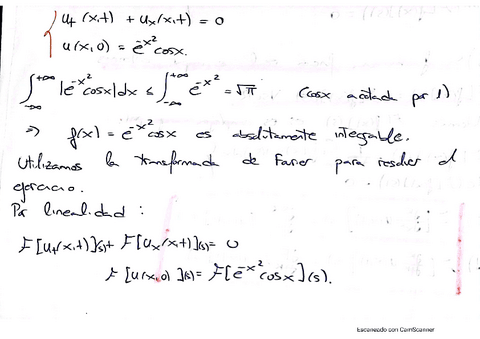 u_t(x,t) + u_x(x,t) = 0
u(x,0) = e^{-x²} cosx.
∫_{-∞}^{+∞} |e^{-x²} cosx| dx ≤ ∫_{-∞}^{+∞} e^{-x²} = √π. (cosx acotada por 1)
⇒ f(x) = e^{-x²} cosx es absolutamente integrable.
Utilizamos la transformada de Fourier para resolver el
ejercicio.
Por linealidad :
F[u_t(x,t)](s) + F[u_x(x,t)](s) = 0
F[u(x,0)](s) = F[e^{-x²} cosx](s).
Escaneado con CamScanner